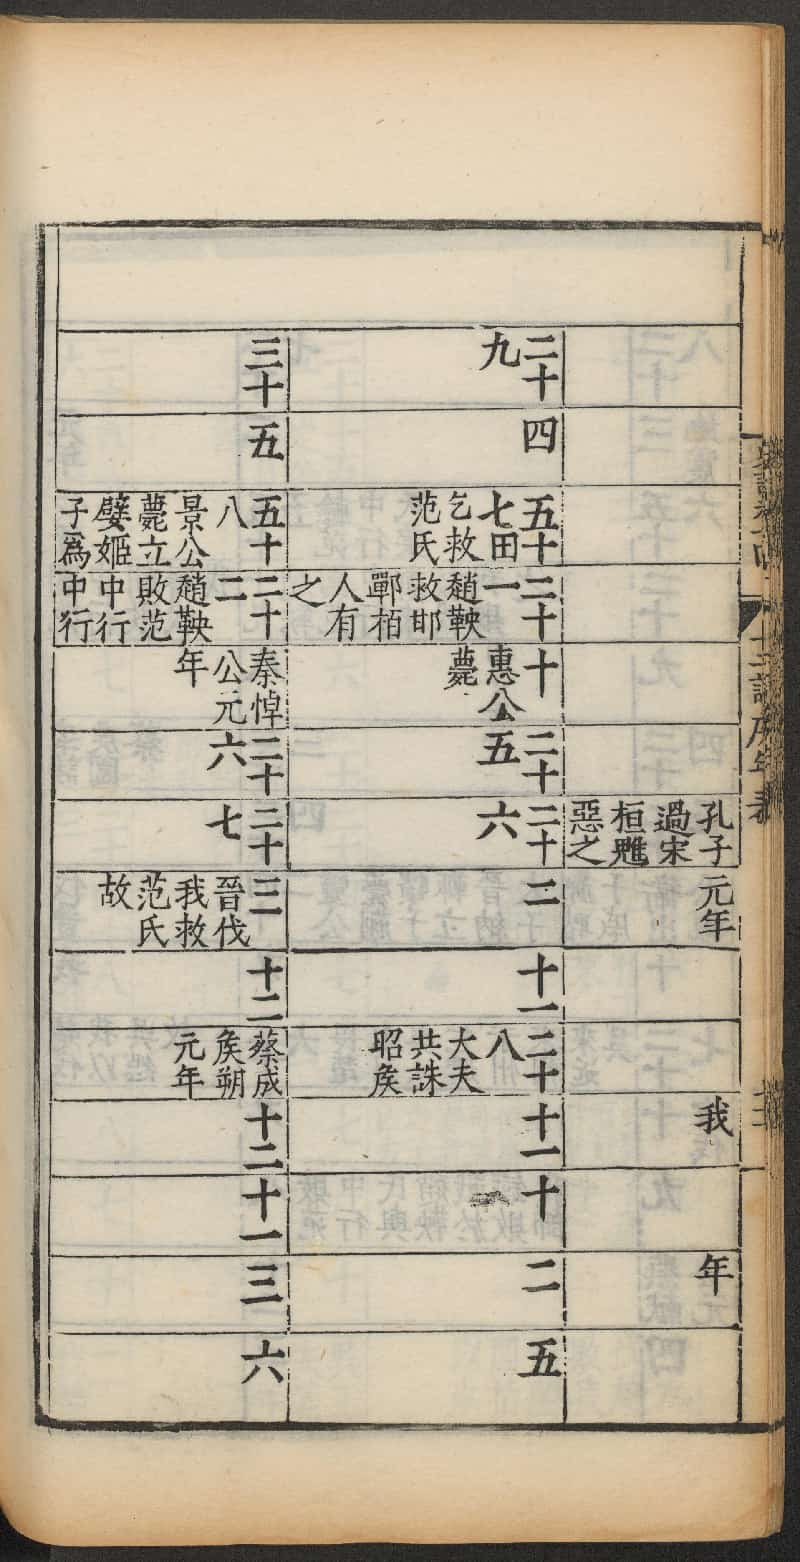 十二諸侯年表
孔子
過宋
桓魋
惡之
元年
我
年
二十
九
四
五十
七田
乞救
范氏
二十
一
趙鞅
救邯
鄲栢
人有
之
十
惠公
薨
二十
五
二十
六
二
十一
二十
八
大夫
共誅
昭矦
十一
十
二
五
三十
五
五十
八
景公
薨立
嬖姬
子爲
二十
二
趙鞅
敗范
中行
中行
秦悼
公元
年
二十
六
二十
七
三
晉伐
我救
范氏
故
十二
蔡成
矦朔
元年
十二
十一
三
六